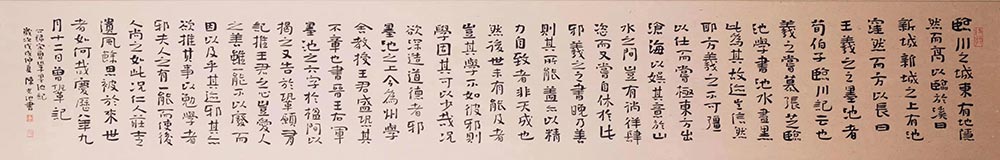 臨川之城東有地隱
然而高以臨於溪曰
新城新城之上有池
窪然而方以長曰
王羲之之墨池者
荀伯子臨川記云也
羲之嘗慕張芝臨
池學書池水盡黑
此為其故迹豈信然
耶方羲之之不可彊
以仕而嘗極東方出
滄海以娛其意於山
水之間豈有徜徉肆
恣而又嘗自休於此
邪羲之之書晚乃善
則其所能蓋亦以精
力自致者非天成也
然後世未有能及者
豈其學不如彼邪則
學固其可以少哉況
欲深造道德者邪
墨池之上今為州學
舍教授王君盛恐其
不章也書晉王右軍
墨池之六字於楹間以
揭之又告於鞏願有
記推王君之心豈愛人
之善雖一能不以廢而
因以及乎其迹邪其亦
欲推其事以勉學者
邪夫人之有一能而使後
人尚之如此況仁人莊士之
遺風餘思被於來世
者如何哉慶曆八年九
月十二日曾鞏記
宋曾鞏墨池記
歲次戊戌仲夏